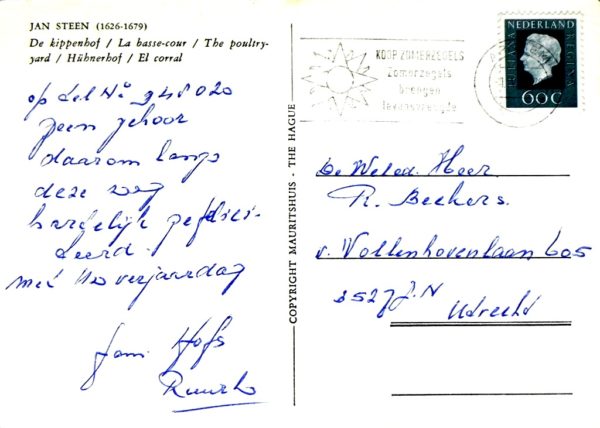 JAN STEEN (1626-1679)
De kippenhof / La basse-cour / The poultry-
yard / Hühnerhof / El corral
op tel No 948020
geen gehoor
daarom langs
deze weg
hartelijk gefelici-
teerd
met Uw verjaardag
Fam. Hofs
COPYRIGHT MAURITSHUIS - THE HAGUE
KOOP ZOMERZEGELS
Zomerzegels
brengen
levensvreugde
NEDERLAND
JULIANA REGINA
60c
De Weled. Heer
R. Beckers.
v. Vollenhovenlaan 605
3527 J.N
Utrecht